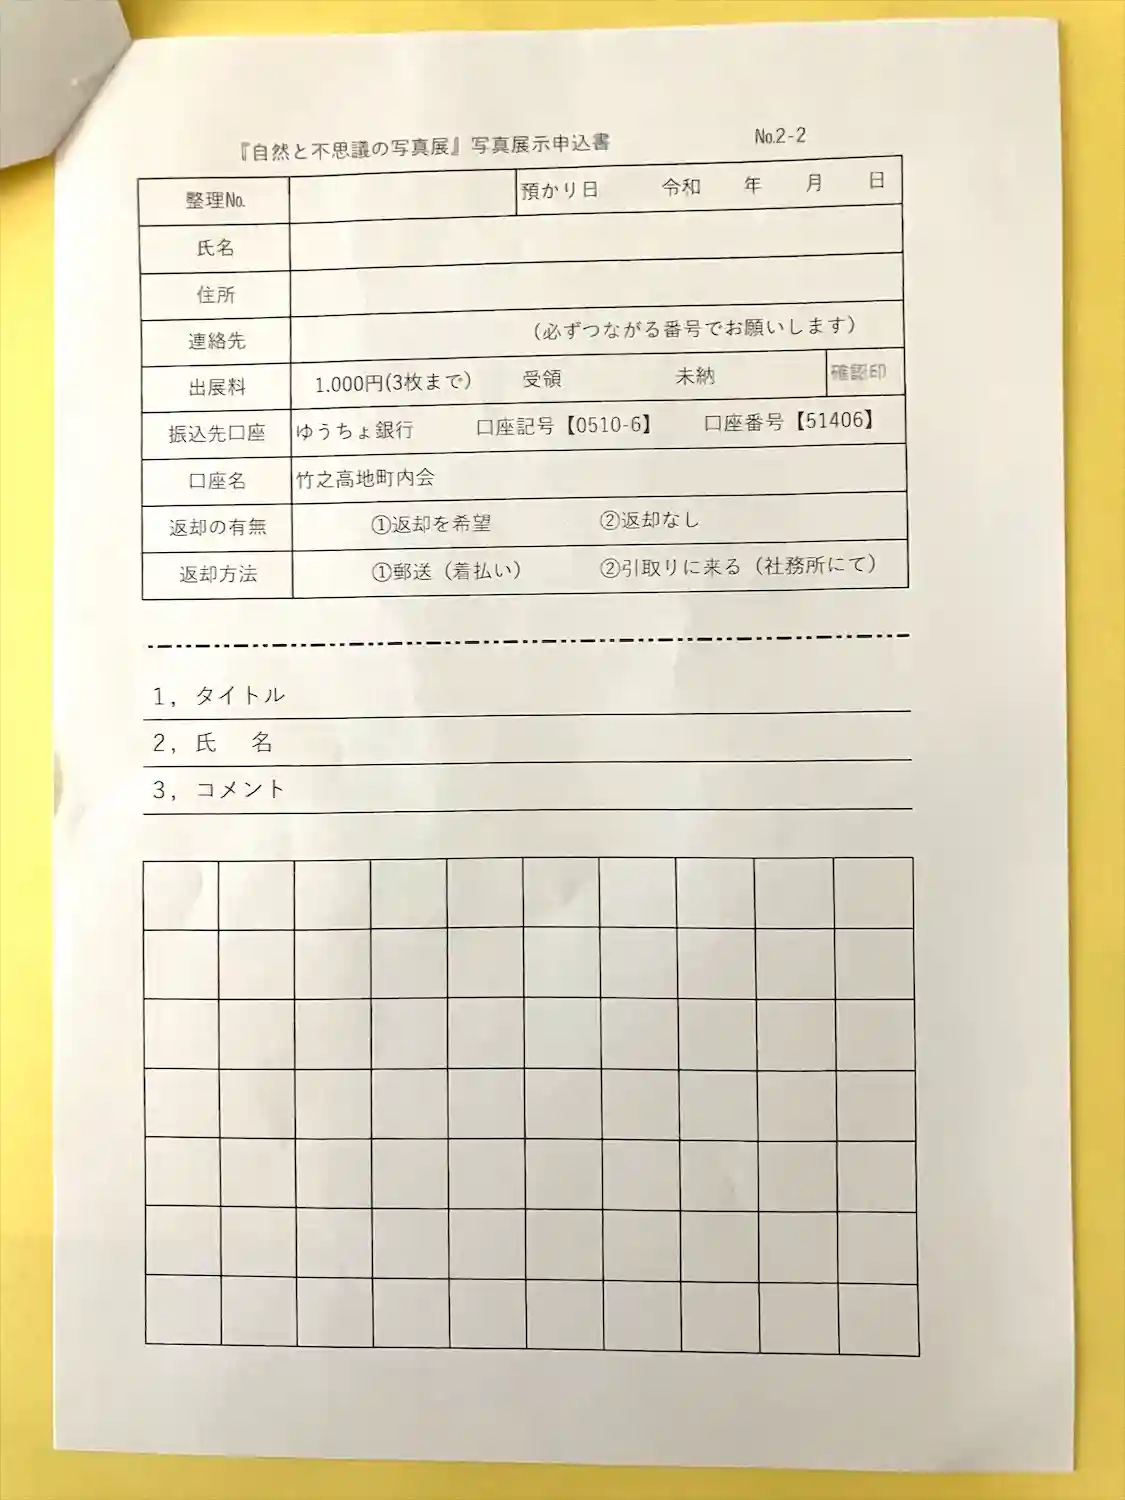 『自然と不思議の写真展』写真展示申込書 №2-2
整理№ 預かり日 令和 年 月 日
氏名
住所
連絡先 （必ずつながる番号でお願いします）
出展料 1.000円(3枚まで) 受領 未納 確認印
振込先口座 ゆうちょ銀行 口座記号【0510-6】 口座番号【51406】
口座名 竹之高地町内会
返却の有無 ①返却を希望 ②返却なし
返却方法 ①郵送（着払い） ②引取りに来る（社務所にて）
1，タイトル
2，氏 名
3，コメント